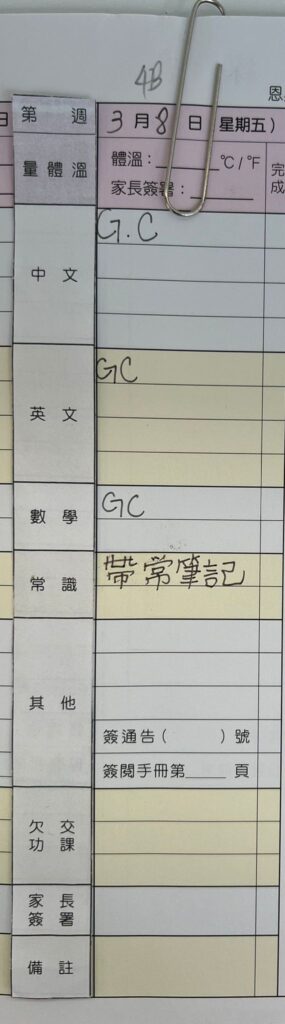 4B
恩
日
第 週
3月8日(星期五)
量體溫
體溫:______°C/°F
家長簽署:______
完
成
中文
G.C
英文
GC
數學
GC
常識
帶常筆記
其他
簽通告( )號
簽閱手冊第____頁
欠交
功課
家長
簽署
備註